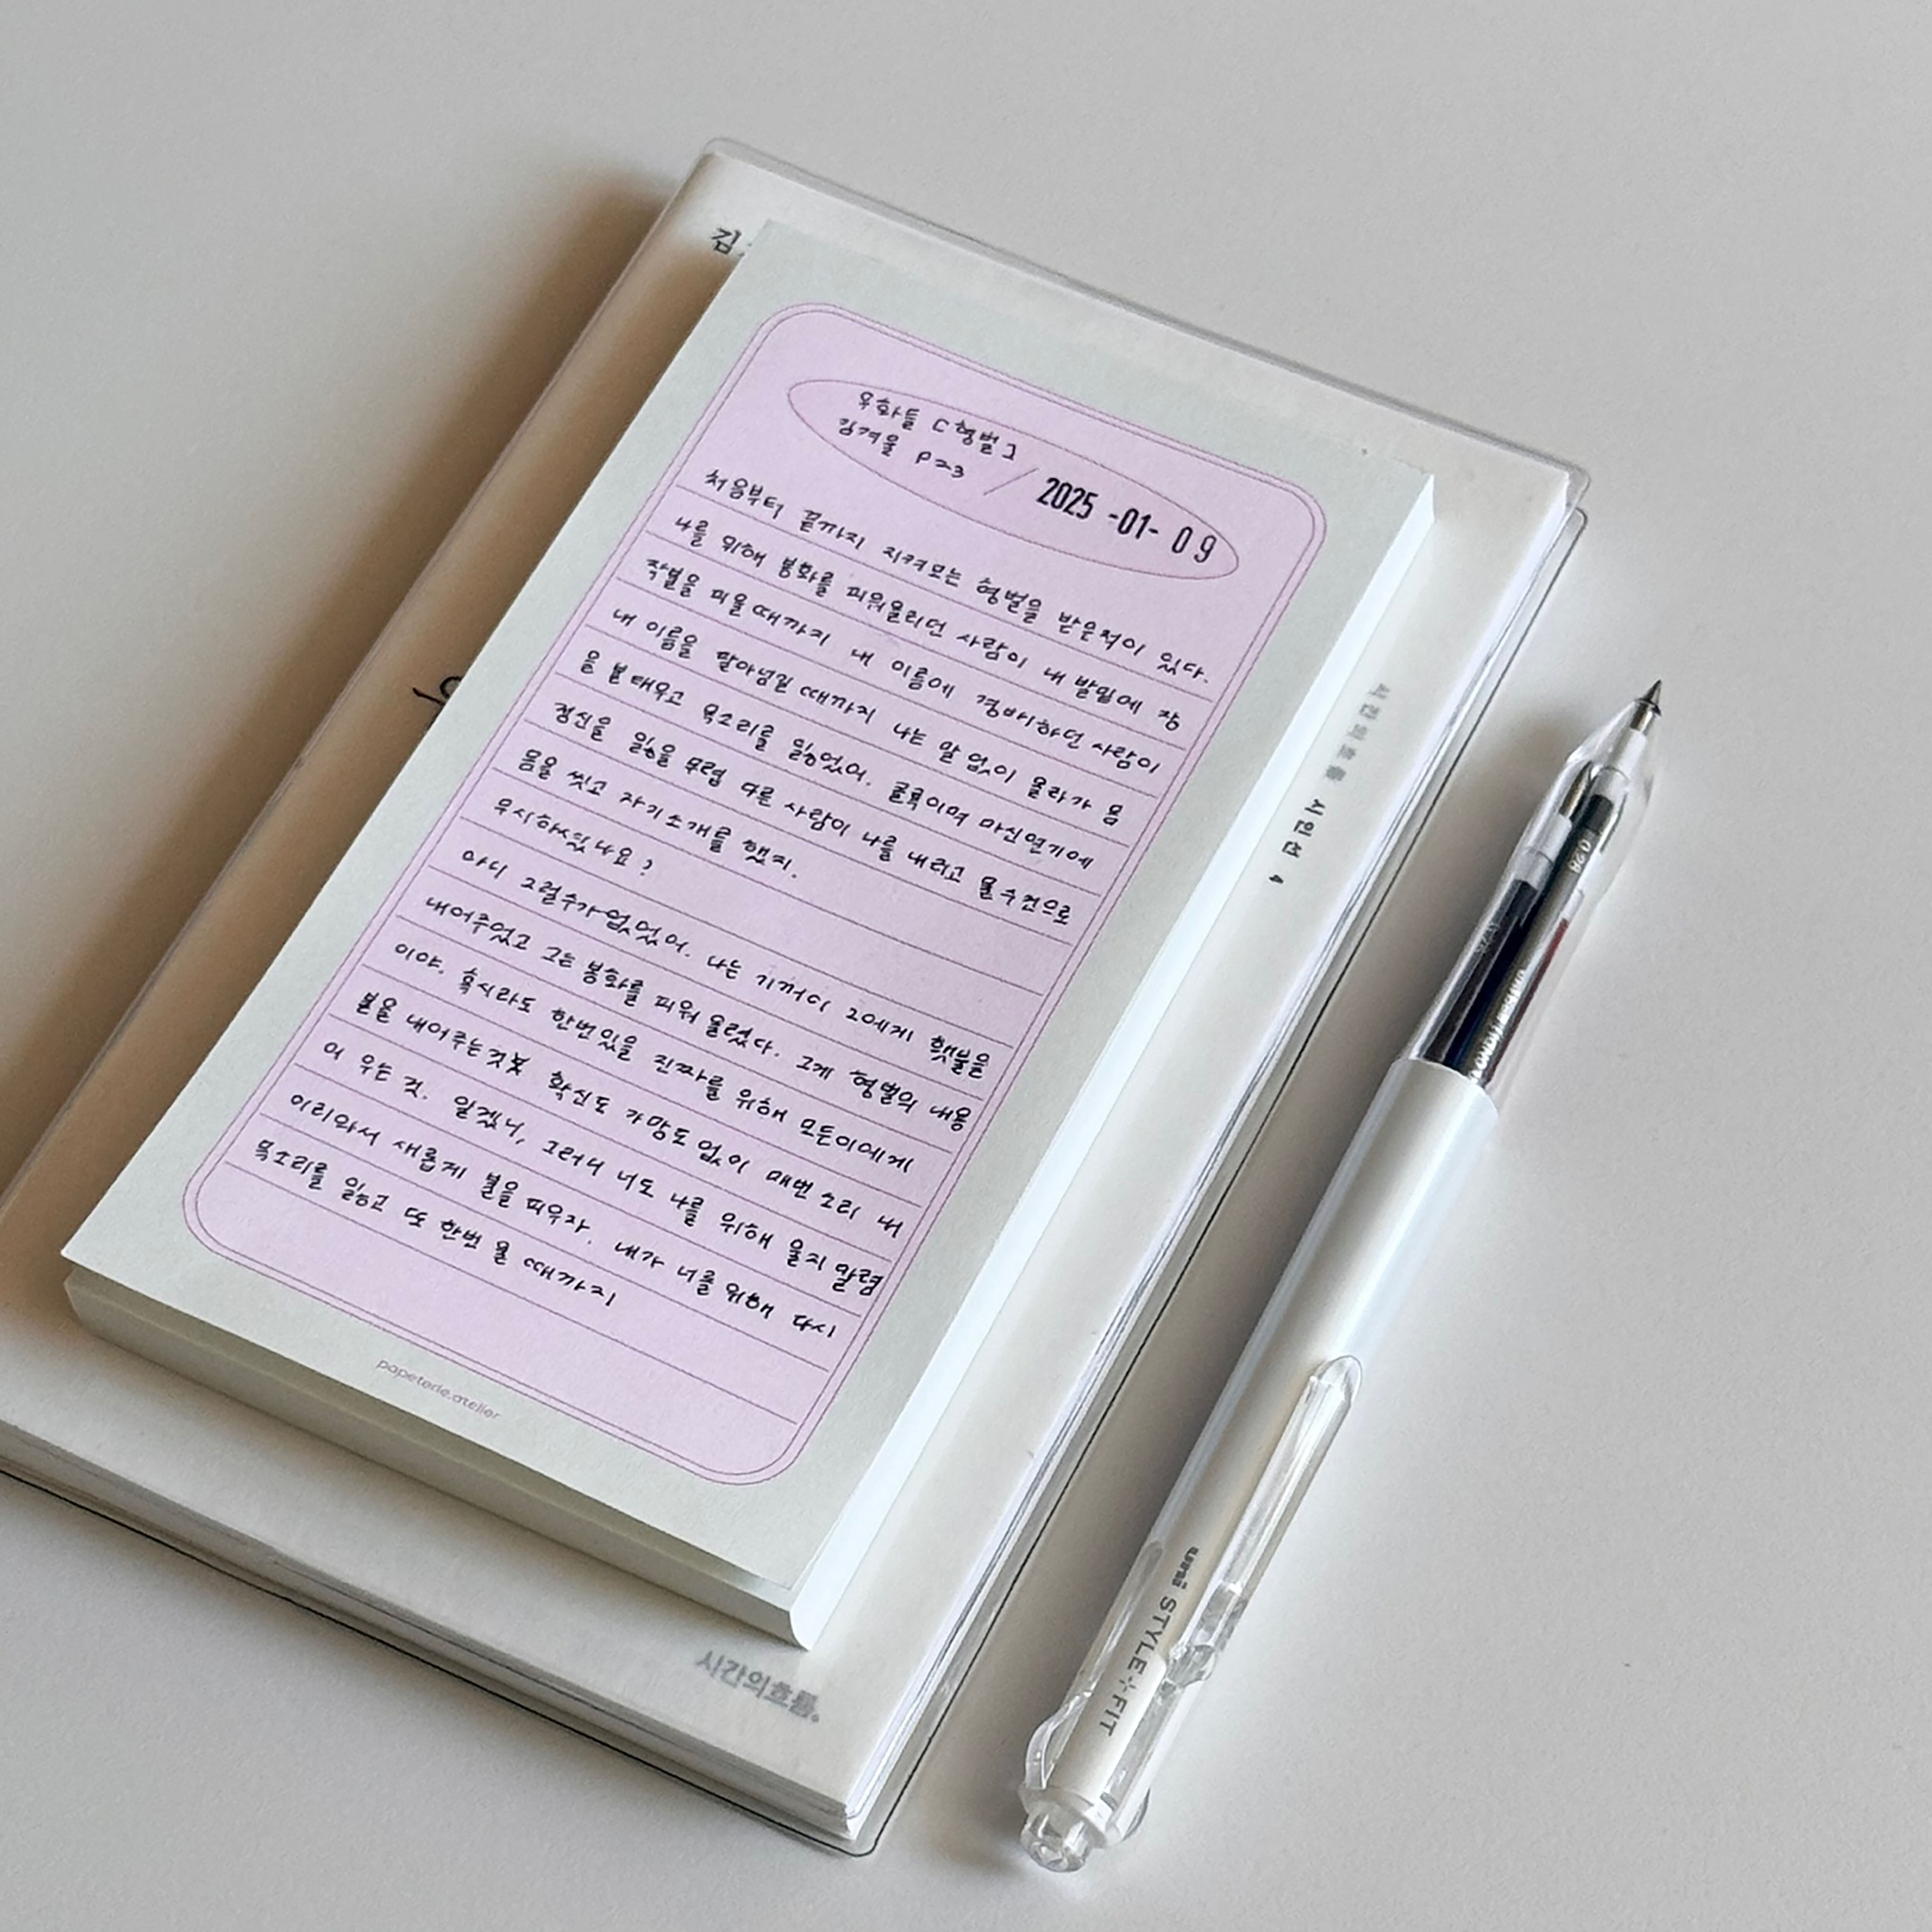 김
우화들 [형벌]
김겨울 P23 / 2025 -01- 09
처음부터 끝까지 지켜보는 형벌을 받은적이 있다.
나를 위해 봉화를 피워올리던 사람이 내 발밑에 장
작불을 피울때까지 내 이름에 경배하던 사람이
내 이름을 팔아넘길 때까지 나는 말 없이 올라가 몸
을 불 태우고 목소리를 잃었어. 클록이며 마신연기에
정신을 잃을 무렵 다른 사람이 나를 내리고 물수건으로
몸을 씻고 자기소개를 했지.
무시하셨나요?
아니 그럴수가없었어. 나는 기꺼이 그에게 햇불을
내어주었고 그는 봉화를 피워 올렸다. 그게 형벌의 내용
이야. 혹시라도 한번있을 진짜를 위해 모든이에게
불을 내어주는것 확신도 가망도 없이 매번 소리 내
어 우는 것. 알겠니, 그러니 너도 나를 위해 울지 말렴
이리와서 새롭게 불을 피우자. 내가 너를 위해 다시
목소리를 잃고 또 한번 울 때까지
papeterie.atelier
시간의흐름 시인선 4
시간의흐름。
0.28
uni STYLE FIT